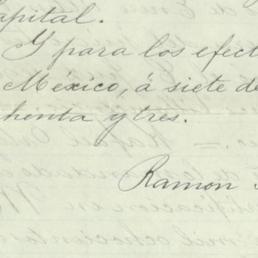 apital.
Y para los efect
México, á siete de
chenta y tres.
Ramon